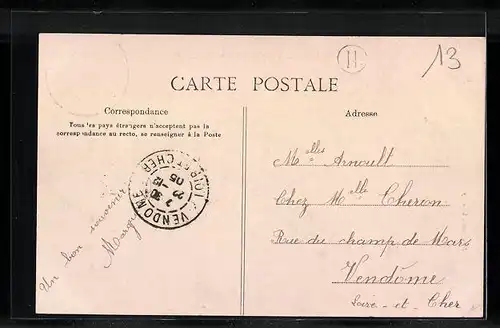 H
13
CARTE POSTALE
Correspondance
Tous les pays étrangers n'acceptent pas la
correspondance au recto, se renseigner à la Poste
Adresse
Un bon souvenir
VENDOME
LOIR-ET-CHER
7 30
22 -12
05
Melles Arnoult
Chez Melle Cheron
Rue du champ de Mars
Vendôme
Loire-et-Cher